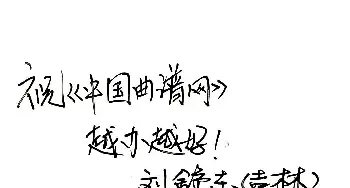 祝《中国曲谱网》
越办越好！
刘 东(吉林)